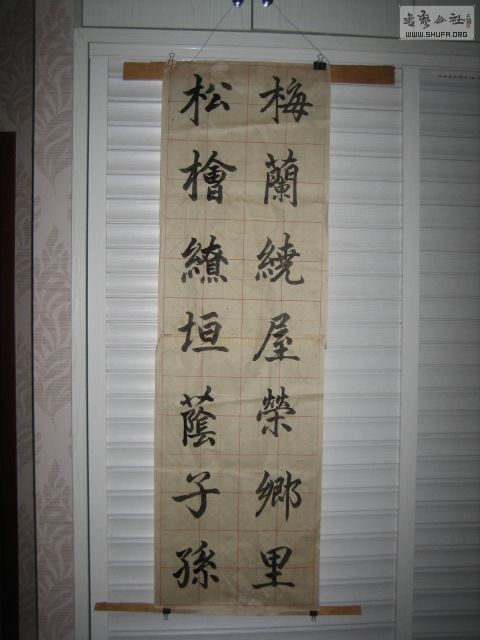 梅蘭繞屋榮鄉里
松檜繚垣蔭子孫
书艺公社
WWW.SHUFA.ORG